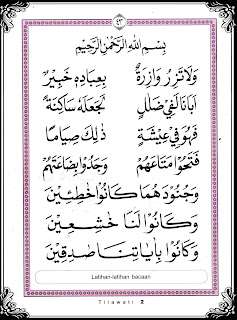 ٤٣
بِسْمِ اللهِ الرَّحْمٰنِ الرَّحِيْمِ
وَلَا تَزِرُ وَازِرَةٌ بِعِبَادِهٖ خَبِيْرٌ
اَبَانَا لَفِيْ ضَلٰلٍ لَجَعَلَهٗ سَاكِنَةً
فَهُوَ فِيْ عِيْشَةٍ ذٰلِكَ صِيَامًا
فَتَحُوْا مَتَاعَهُمْ وَجَدُوْا بِضَاعَتَهُمْ
وَجُنُوْدَهُمَا كَانُوْا خٰطِـِٕيْنَ
وَكَانُوْا لَنَا خٰشِعِيْنَ
وَكَانُوْا بِاٰيَاتِنَا صٰدِقِيْنَ
Latihan-latihan bacaan
Tilawati 2